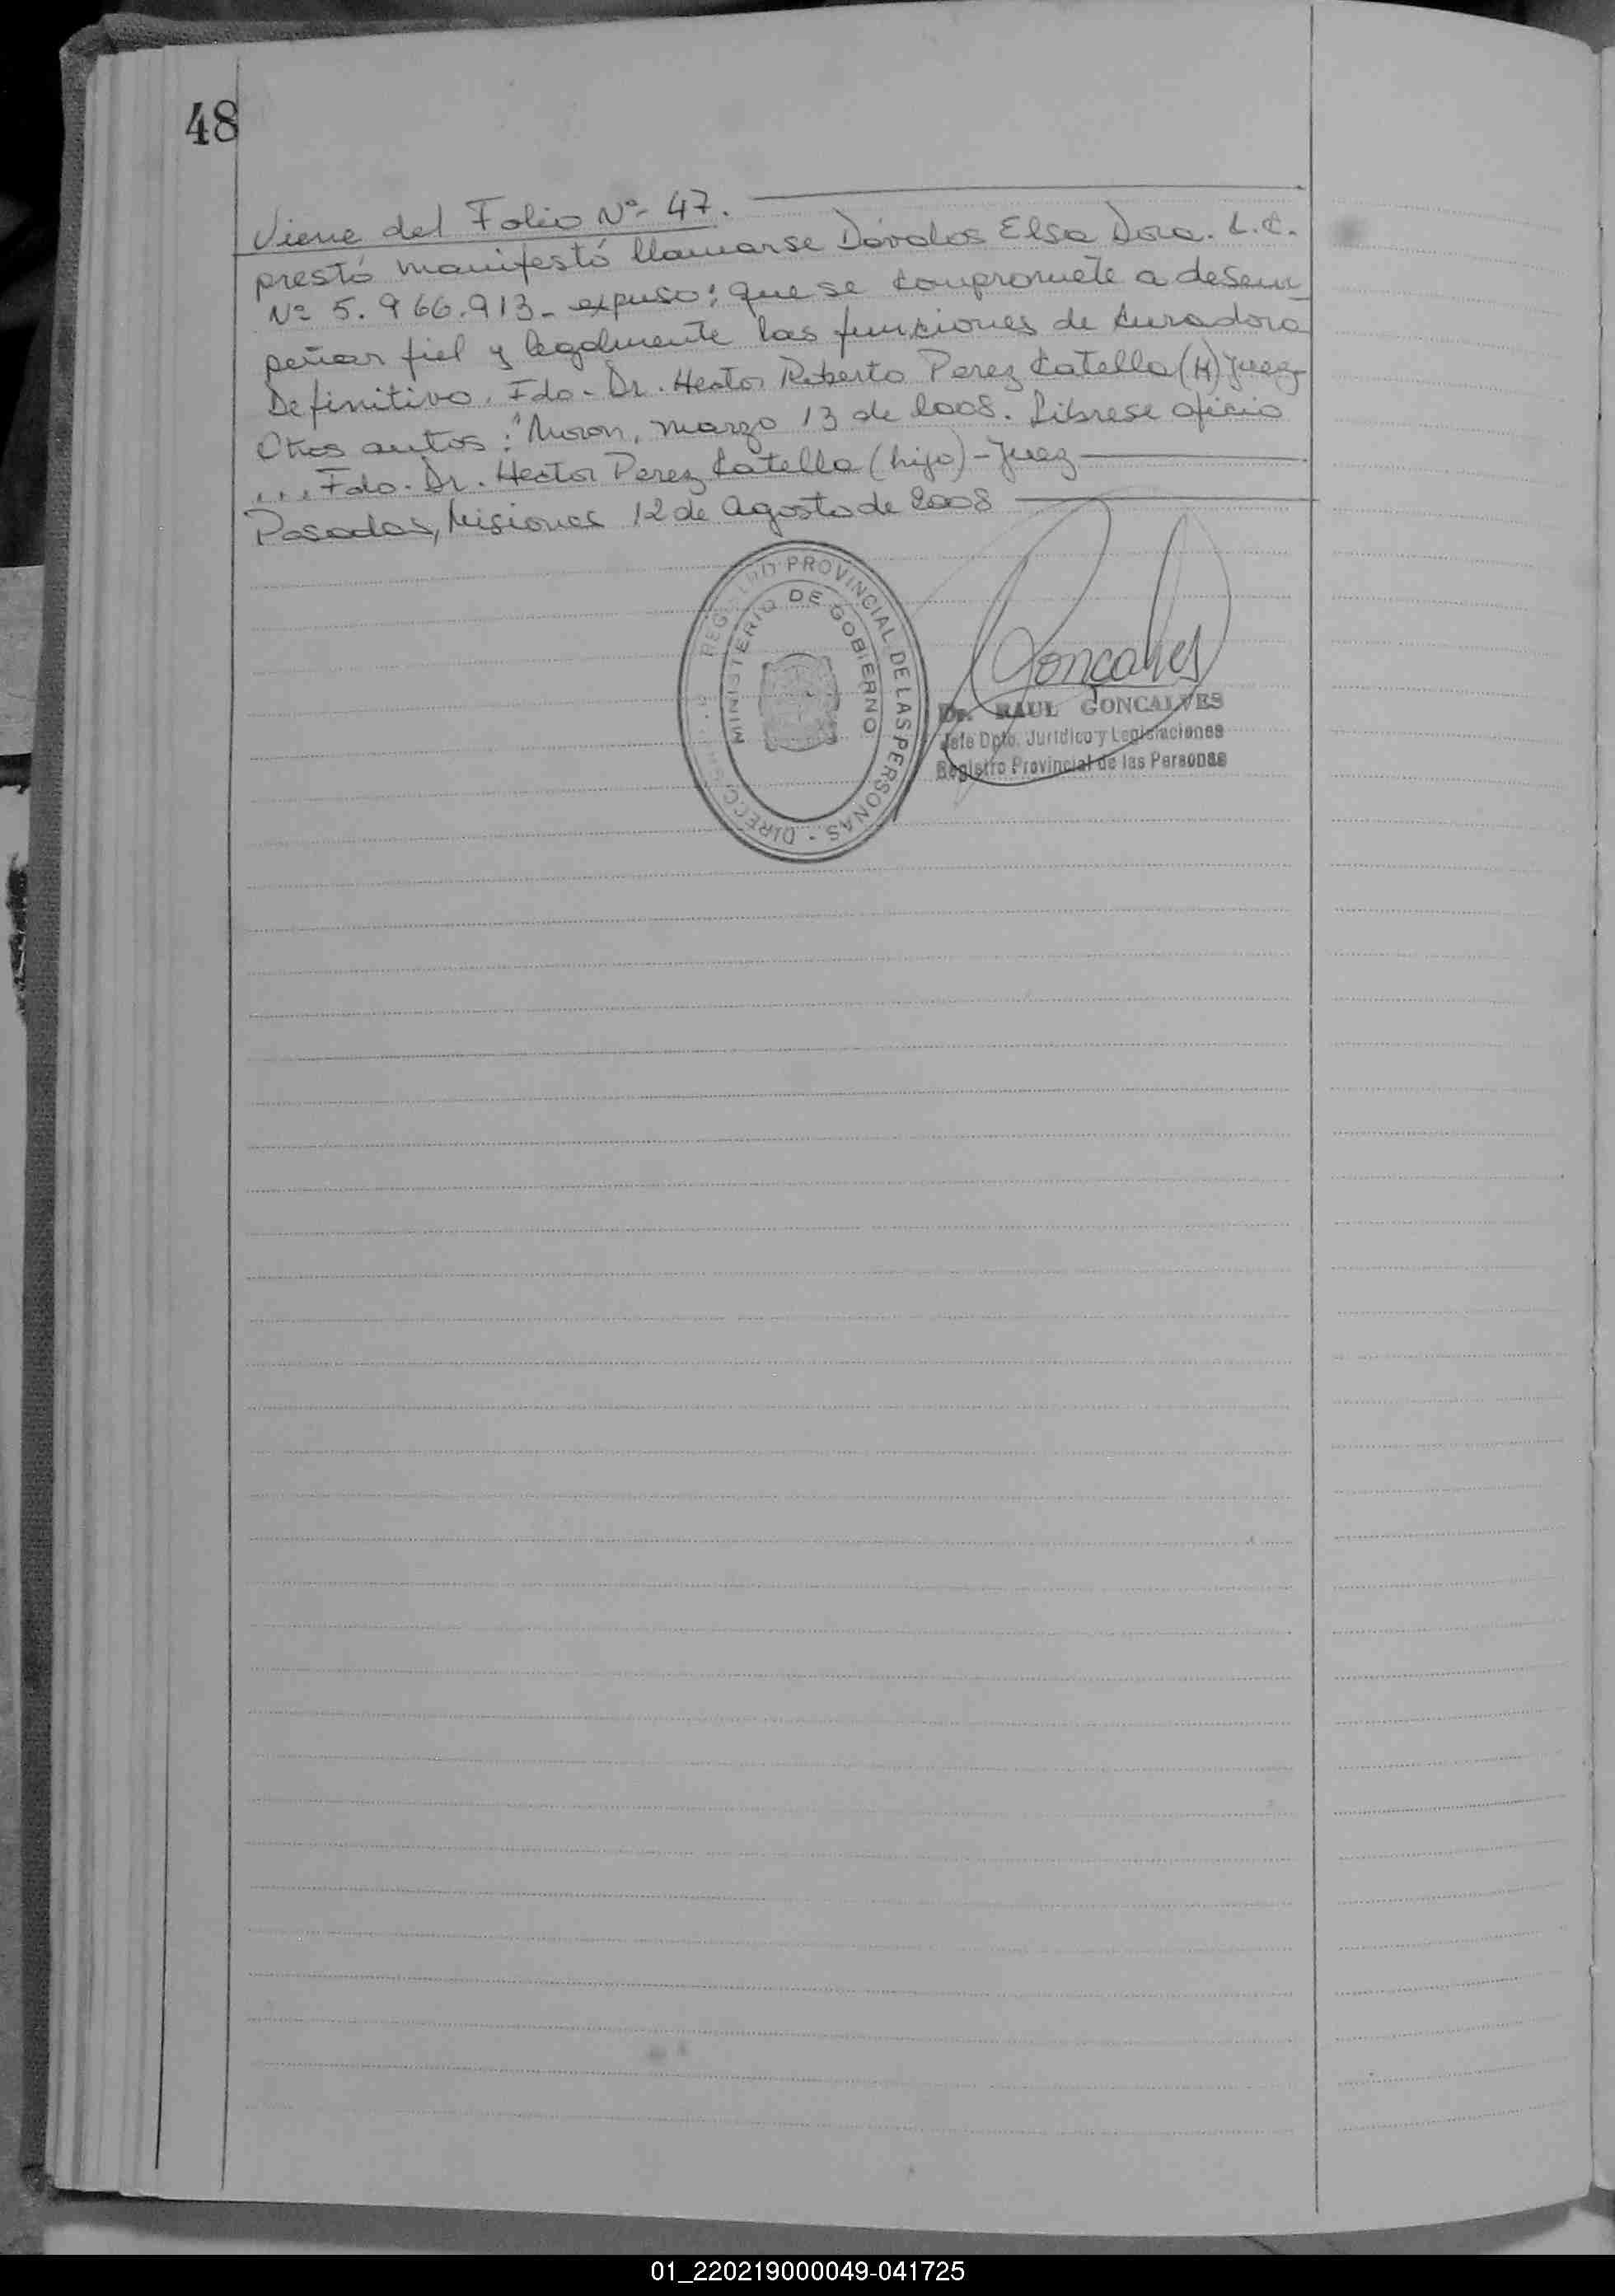 48
Viene del Folio Nº- 47.
prestó manifestó llamarse Dávalos Elsa Dora. L.C.
Nº 5.966.913- expuso: que se compromete a desem
peñar fiel y legalmente las funciones de Curadora
Definitiva. Fdo- Dr. Hector Roberto Perez Catella (H) Juez-
Otros autos: "Moron, marzo 13 de 2008. Librese oficio
... Fdo. Dr. Hector Perez Catella (hijo) - Juez
Posadas, Misiones 12 de Agosto de 2008
REGISTRO PROVINCIAL DE LAS PERSONAS - DIRECC
MINISTERIO DE GOBIERNO
Goncalves
Dr. RAUL GONCALVES
Jefe Dpto. Juridico y Legislaciones
Registro Provincial de las Personas
01_220219000049-041725